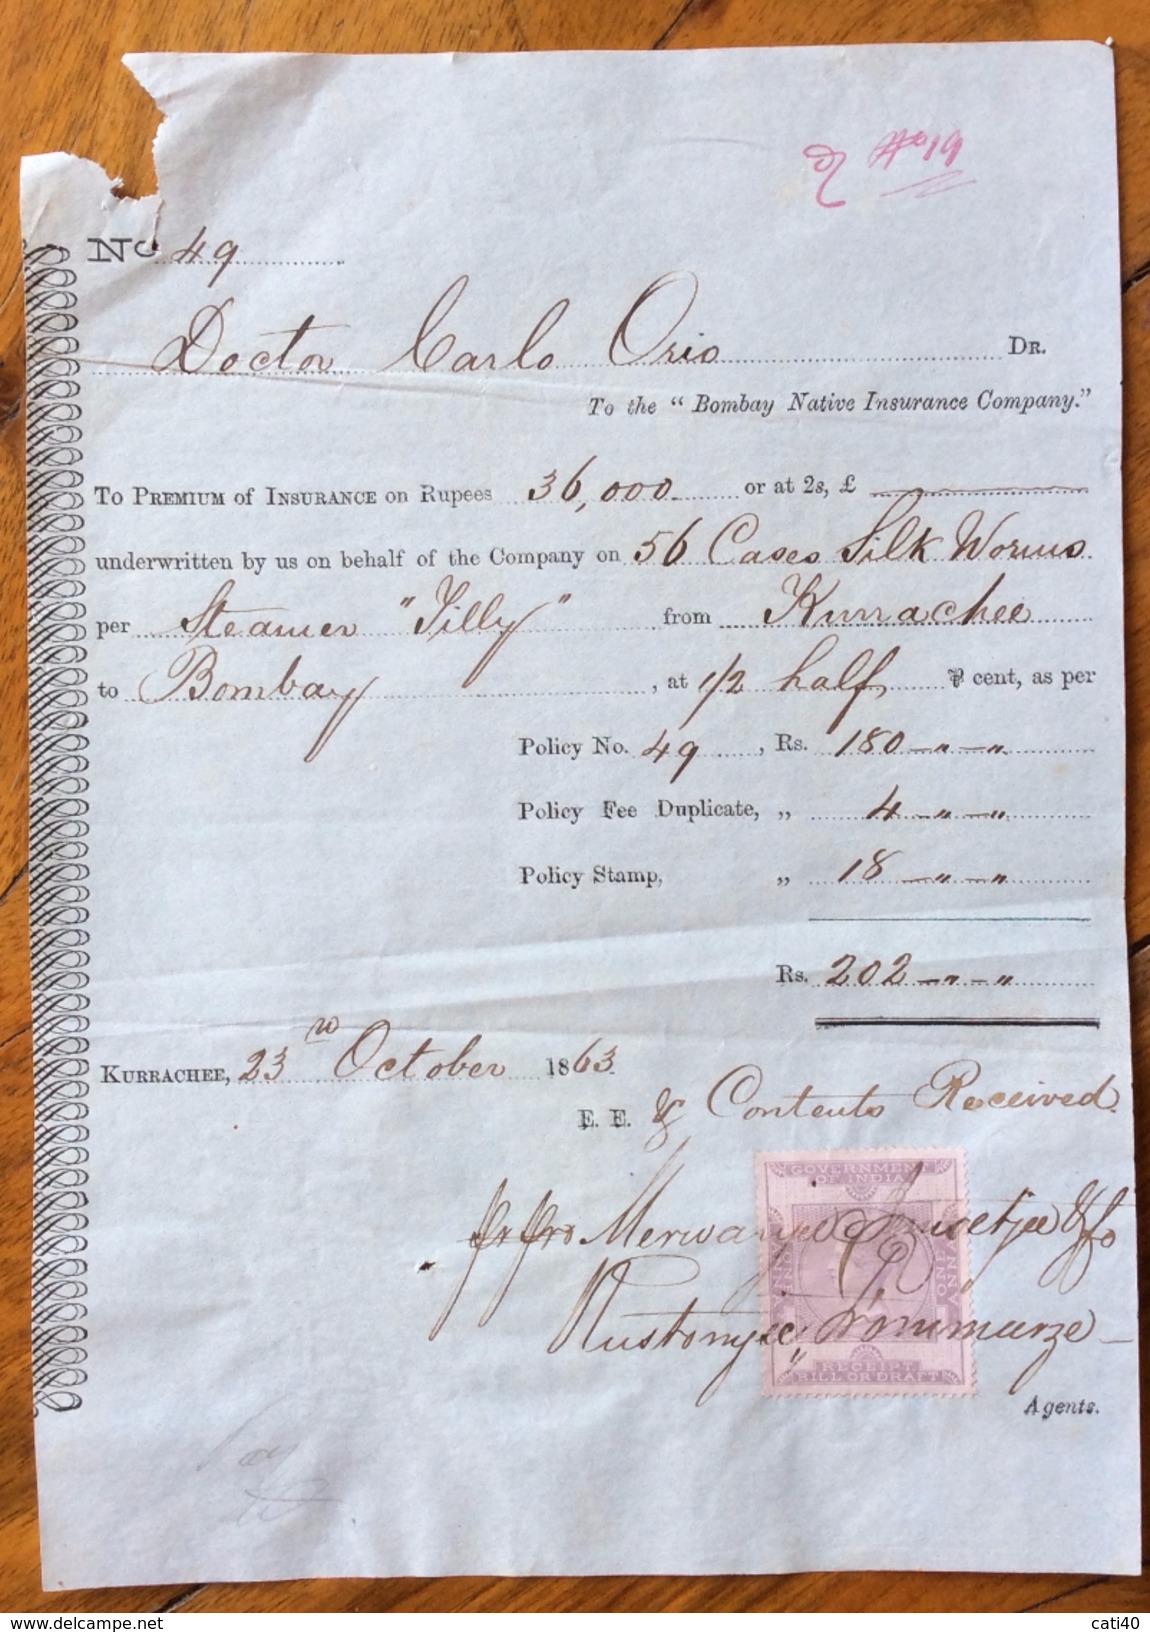 № 19
No 49
Doctor Carlo Orio DR.
To the “ Bombay Native Insurance Company.”
To PREMIUM of INSURANCE on Rupees 36,000 or at 2s, £
underwritten by us on behalf of the Company on 56 Cases Silk Worms
per Steamer "Tilly" from Kurrachee
to Bombay , at 1/2 half ⅌ cent, as per
Policy No. 49 , Rs. 180 — " — "
Policy Fee Duplicate, „ 4 — " — "
Policy Stamp, „ 18 — " — "
Rs. 202 — " — "
KURRACHEE, 23rd October 1863.
E. E. & Contents Received
GOVERNMENT
OF INDIA
ONE ANNA
pr pro Merwanjee & Co
Rustomjee
RECEIPT
BILL OR DRAFT
Agents.
delcampe.net
cati40